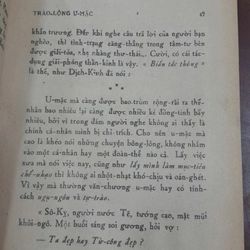 TRÀO-LỘNG U-MẶC 47
khẩn trương. Đến khi nghe câu trả lời của người bạn
nghèo, thì tình-trạng căng-thẳng trong tâm-tư bèn
được giải-tỏa, nhẹ nhàng thư-thái... Cười, có cái tác-
dụng giải-phóng thần-kinh là vậy. « Biến tắc thông »
là thế, như Dịch-Kinh đã nói :
* * *
U-mặc mà càng được bao-trùm rộng-rãi ra thế-
nhân bao nhiêu lại càng được nhiều kẻ đồng-tình bấy
nhiêu, bởi vì trong đấy người nghe không ai thấy là
chính cá nhân mình bị chỉ trích. Cho nên u-mặc mà
có cao là khéo nói những chuyện bông-lông, không nhằm
vào một cá-nhân hay một đoàn-thể nào. Lấy việc
xưa mà nói thì không ai thù oán, hoặc lấy việc
mình mà cười thì không ai giận hờn, lấy mình làm mục-tiêu
chế-nhạo thì không ai sinh nhột-nhạt khó-chịu và oán-ghét.
Vì vậy mà thường văn-chương u-mặc hay có tính-cách
ngụ-ngôn và tự-trào.
« Sô-Kỵ, người nước Tề, tướng cao, mặt mũi
khôi-ngô. Một buổi sáng soi gương, hỏi vợ :
— Ta đẹp hay Từ-công đẹp ?